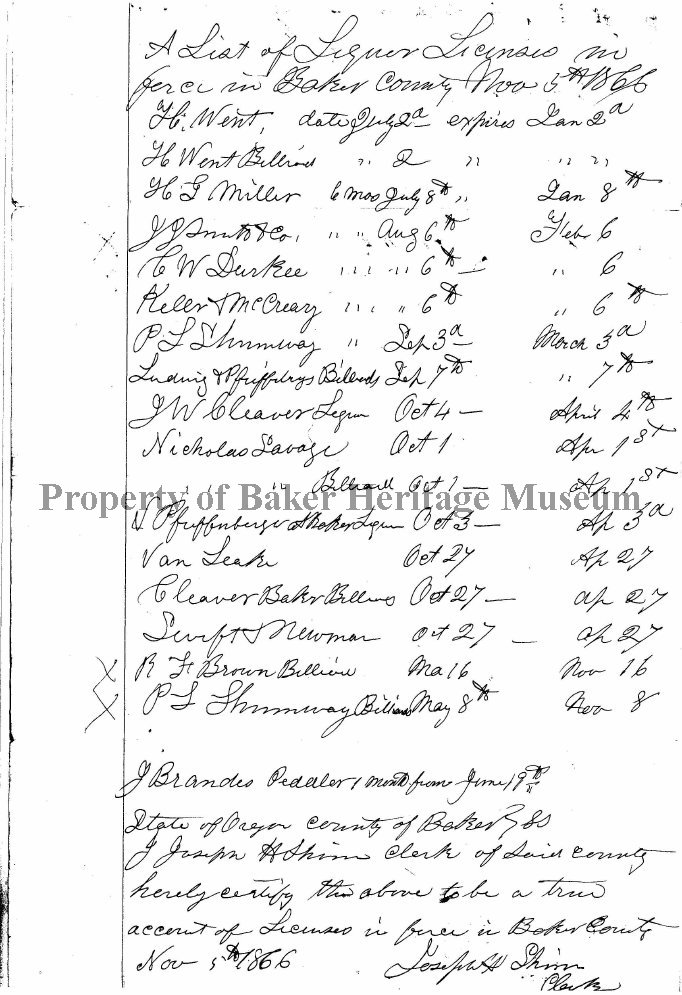 A List of Liquor Licenses in
force in Baker County Nov 5th 1866
H. Went, date July 2d expires Jan 2d
H Went Billiard " 2 " " "
H G Miller 6 mos July 8th " Jan 8th
J J Smith & Co, " " Aug 6th Feb 6
C W Durkee " " " 6th — " 6
Keler & McCreary " " " 6th " 6th
P L Shumway " Sep 3d — March 3d
Ludwig & Billiards Sep 7th " 7th
J W Cleaver Liquor Oct 4 — April 4th
Nicholas Savage Oct 1 Apr 1st
" " Billiard Oct 1 — Ap 1st
Property of Baker Heritage Museum
Pfeiffenberger & Baker Liquor Oct 3 — Ap 3d
Van Leake Oct 27 Ap 27
Cleaver Baker Billiards Oct 27 — ap 27
Swift & Newman Oct 27 — ap 27
X R F Brown Billiard Ma 16 Nov 16
X P L Shumway Billiard May 8th Nov 8
J Brandes Peddler 1 month from June 19th
State of Oregon County of Baker } SS
I Joseph H Shinn Clerk of Said County
hereby certify the above to be a true
account of Licenses in force in Baker County
Nov 5th 1866 Joseph H Shinn
Clerk